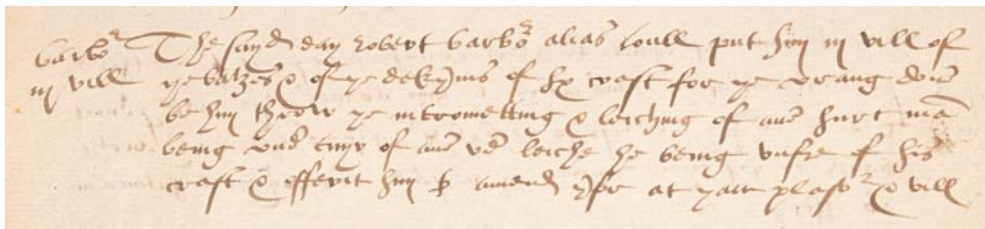 barbor The sayd day robert barbor alias put hym in will of
in will ye balzes & of ye dekynis of hys craft for ye wrang doin
be hym throw ye intrometting & leiching of ane hurt man
being vnd cuyr of ane vd leiche he being vnfre of his
craft & offerit hym to amend yfor at yair plesor & will